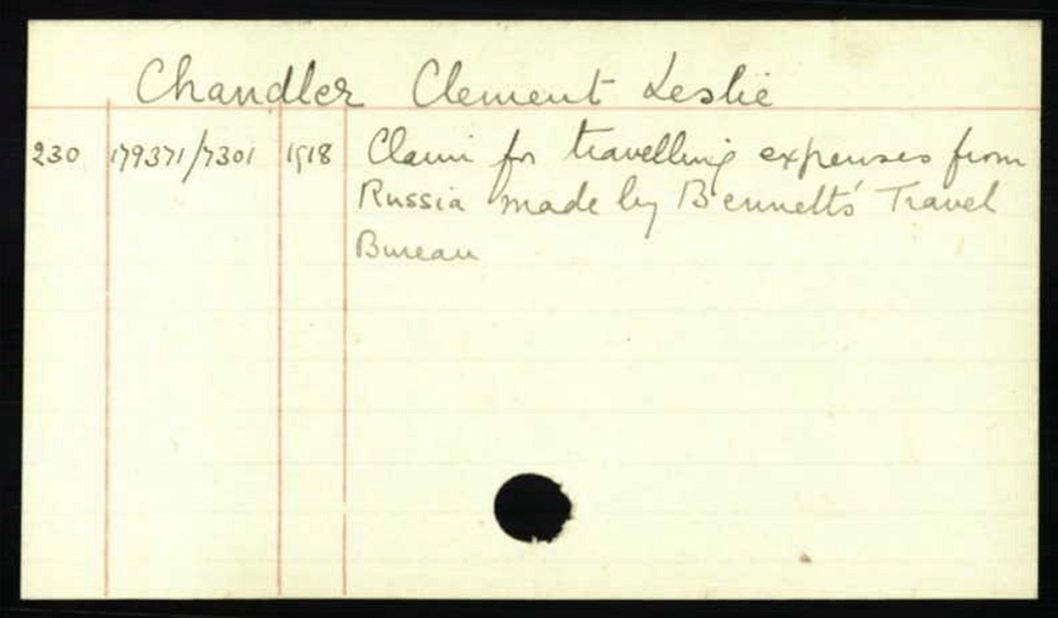 Chandler Clement Leslie
230 179371/7301 1918 Claim for travelling expenses from
Russia made by Bennett's Travel
Bureau